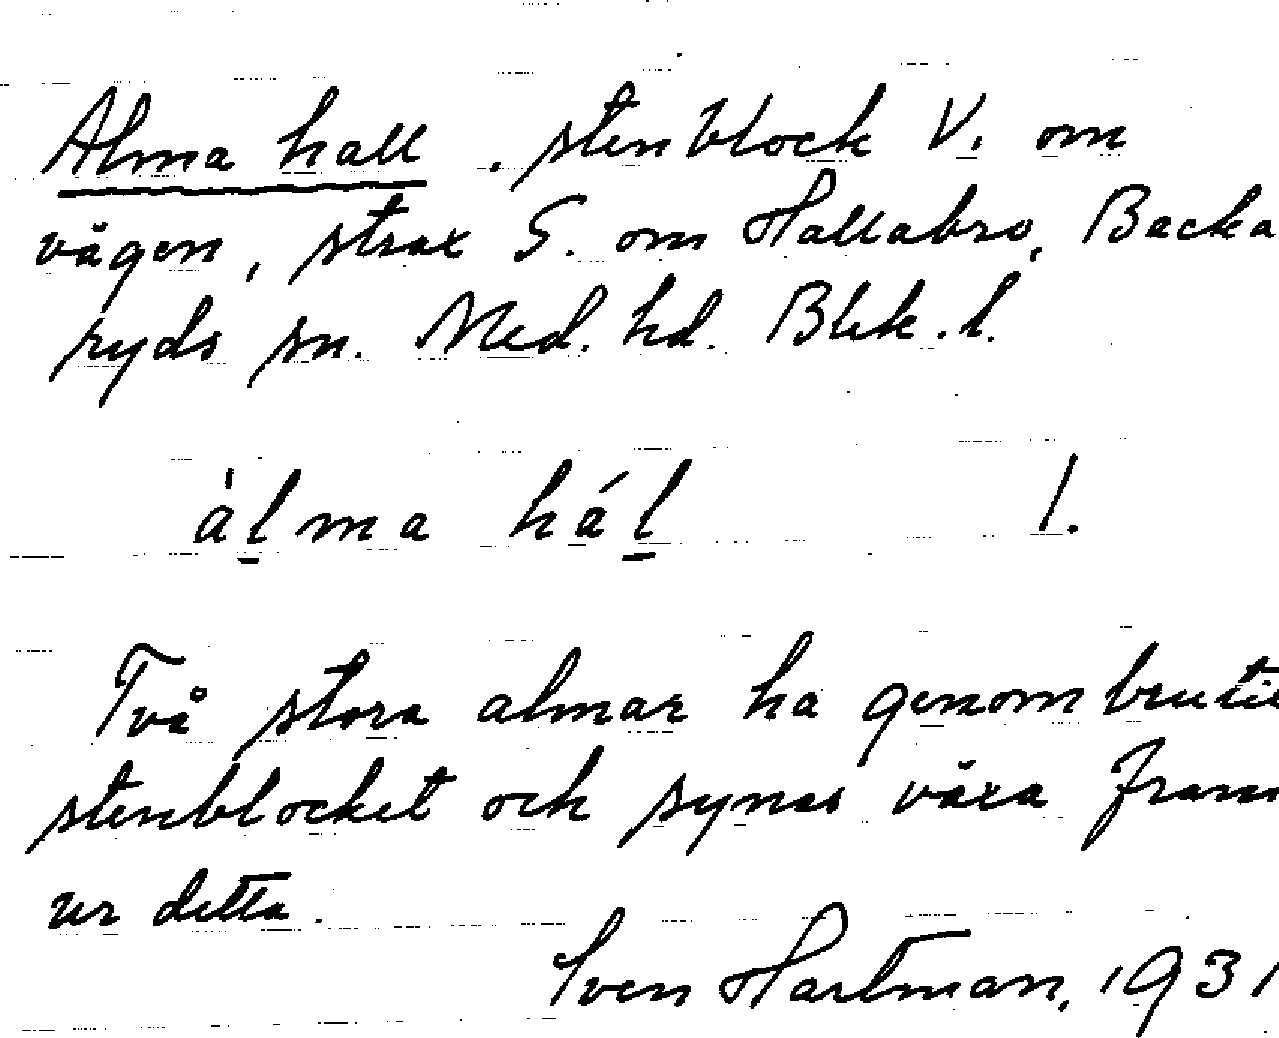 Alma hall. stenblock V. om
vägen, strax S. om Hallabro, Backa
ryds sn. Med. hd. Blek. l.
àlma hál l.
Två stora almar ha genombrutit
stenblocket och synas växa fram
ur detta.
Sven Hartman, 1931